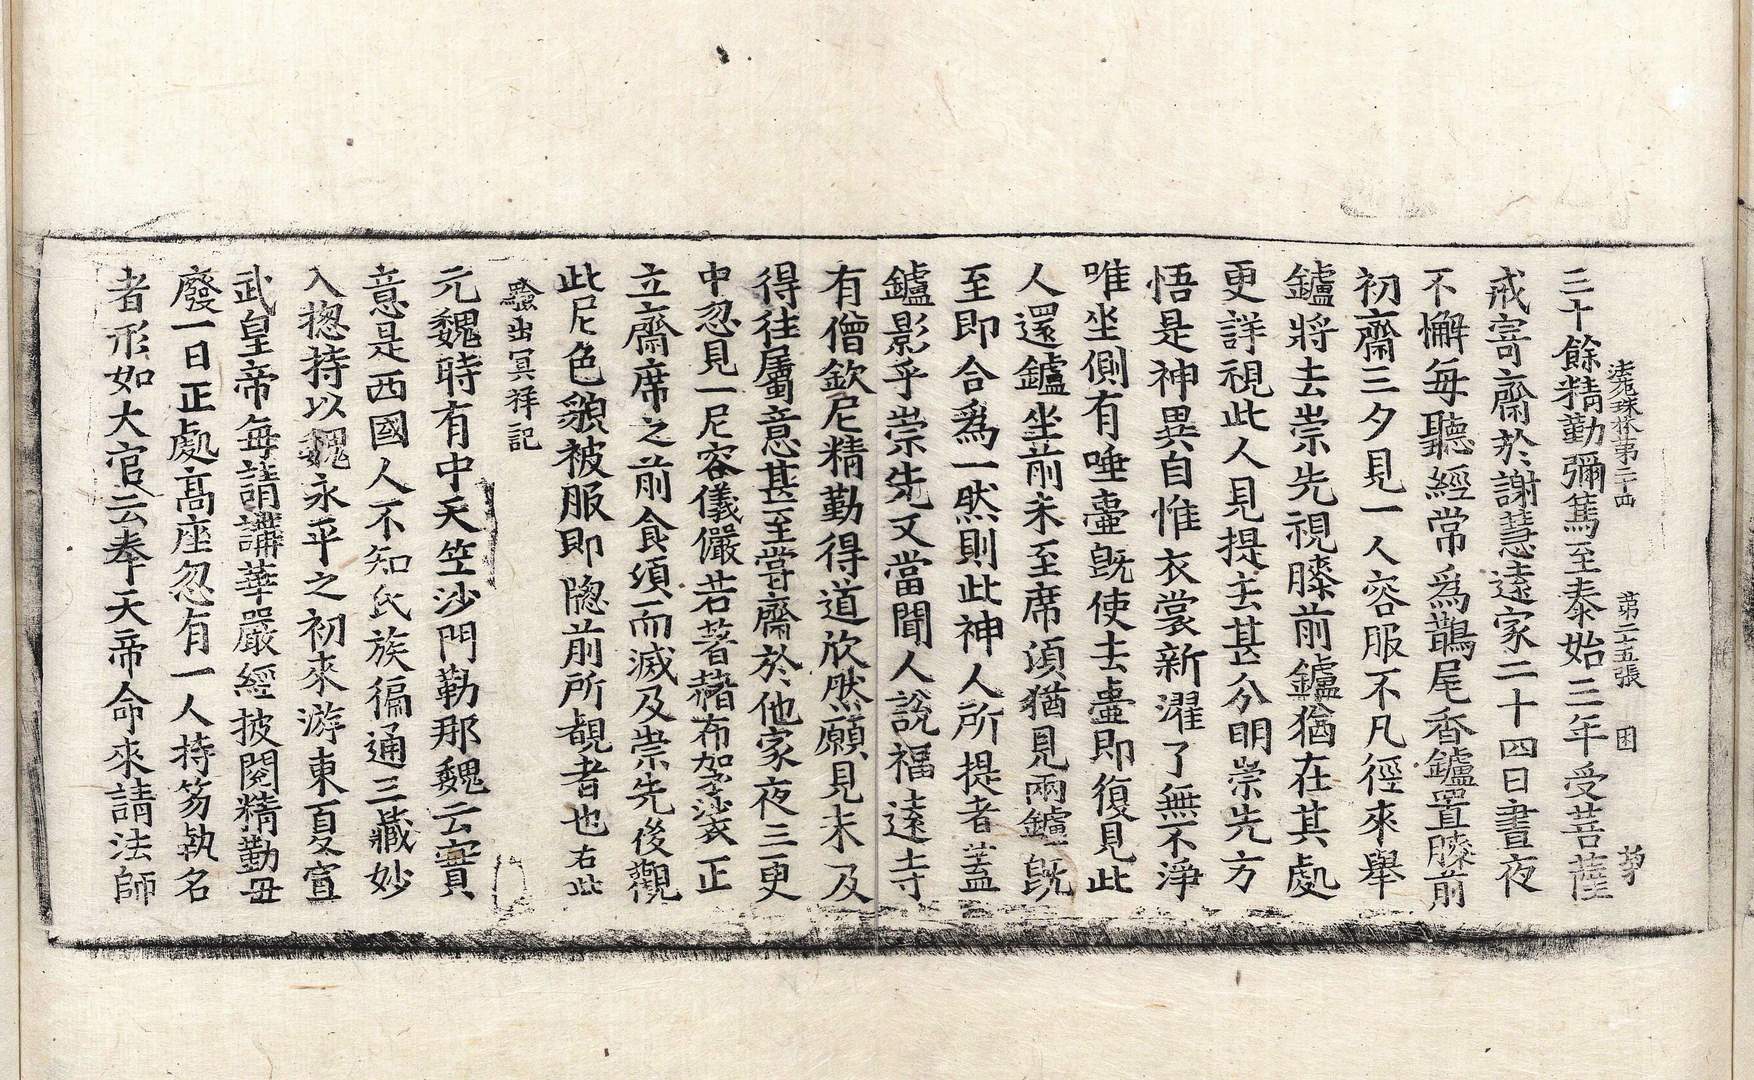 法苑珠林第二十四　第二十五張　困
三十餘精勤彌篤至泰始三年受菩薩
戒寄齋於謝慧遠家二十四日晝夜
不懈每聽經常爲鵲尾香鑪置膝前
初齋三夕見一人容服不凡徑來舉
鑪將去崇先視膝前鑪猶在其處
更詳視此人見提去甚分明崇先方
悟是神異自惟衣裳新濯了無不淨
唯坐側有唾壷旣使去壷即復見此
人還鑪坐前未至席須猶見兩鑪旣
至即合爲一然則此神人所提者蓋
鑪影乎崇先又當聞人說福遠寺
有僧欽尼精勤得道欣然願見未及
得往屬意甚至嘗齋於他家夜三更
中忽見一尼容儀儼若著赭布加沙衣正
立齋席之前食須而滅及崇先後觀
此尼色貌被服即隱前所覩者也右此
驗出冥祥記
元魏時有中天竺沙門勒那魏云寶
意是西國人不知氏族徧通三藏妙
入揔持以魏永平之初來游東夏宣
武皇帝每請講華嚴經披閱精勤毋
廢一日正處高座忽有一人持笏執名
者形如大官云奉天帝命來請法師